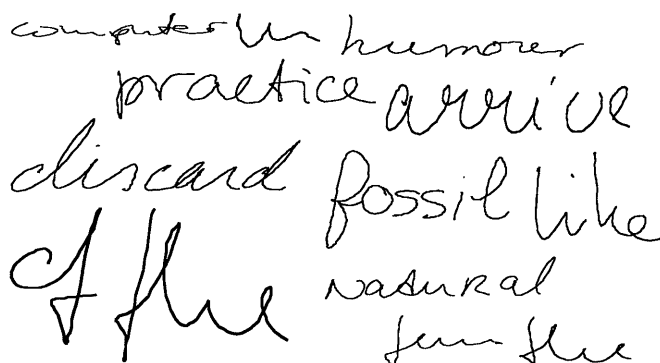 computer humour
practice arrive
discard fossil like
of flu natural
flu